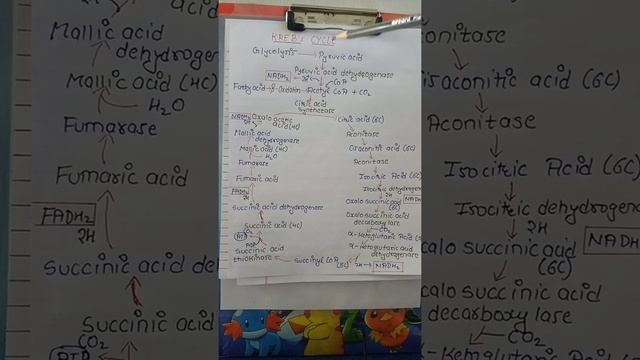 KREB'S CYCLE
Glycolysis → Pyruvic acid
Pyruvic acid dehydrogenase
NADH₂
2H
CoA
Fatty acid β Oxidation → Acetyl CoA + CO₂
Citric acid
Synthetase
NADH₂
2H
Oxalo acetic
acid (4C)
Citric acid (6C)
Mallic acid
dehydrogenase
Aconitase
Mallic acid (4C)
Cisaconitic acid (6C)
H₂O
Fumarase
Aconitase
Fumaric acid
Isocitric Acid (6C)
FADH₂
2H
Isocitric dehydrogen
2H
Oxalo succinic acid
(6C)
NAD
Succinic acid dehydrogenase
Oxalo succinic acid
decarboxylase
Succinic acid (4C)
CO₂
α-Ketoglutaric Acid
Succinic acid
thiokinase
Succinyl CoA
α-Ketoglutaric acid
dehydrogenase
2H → NADH₂
Mallic acid
dehydrogena
Mallic acid (4C)
H₂O
Fumarase
Fumaric acid
FADH₂
2H
Succinic acid de
Succinic acid
CO₂
onitase
isaconitic acid (6C)
Aconitase
Isocitric Acid (6C)
Isocitric dehydrogen
2H
alo succinic acid
(6C)
NADH
calo succinic acid
decarboxylase
CO₂